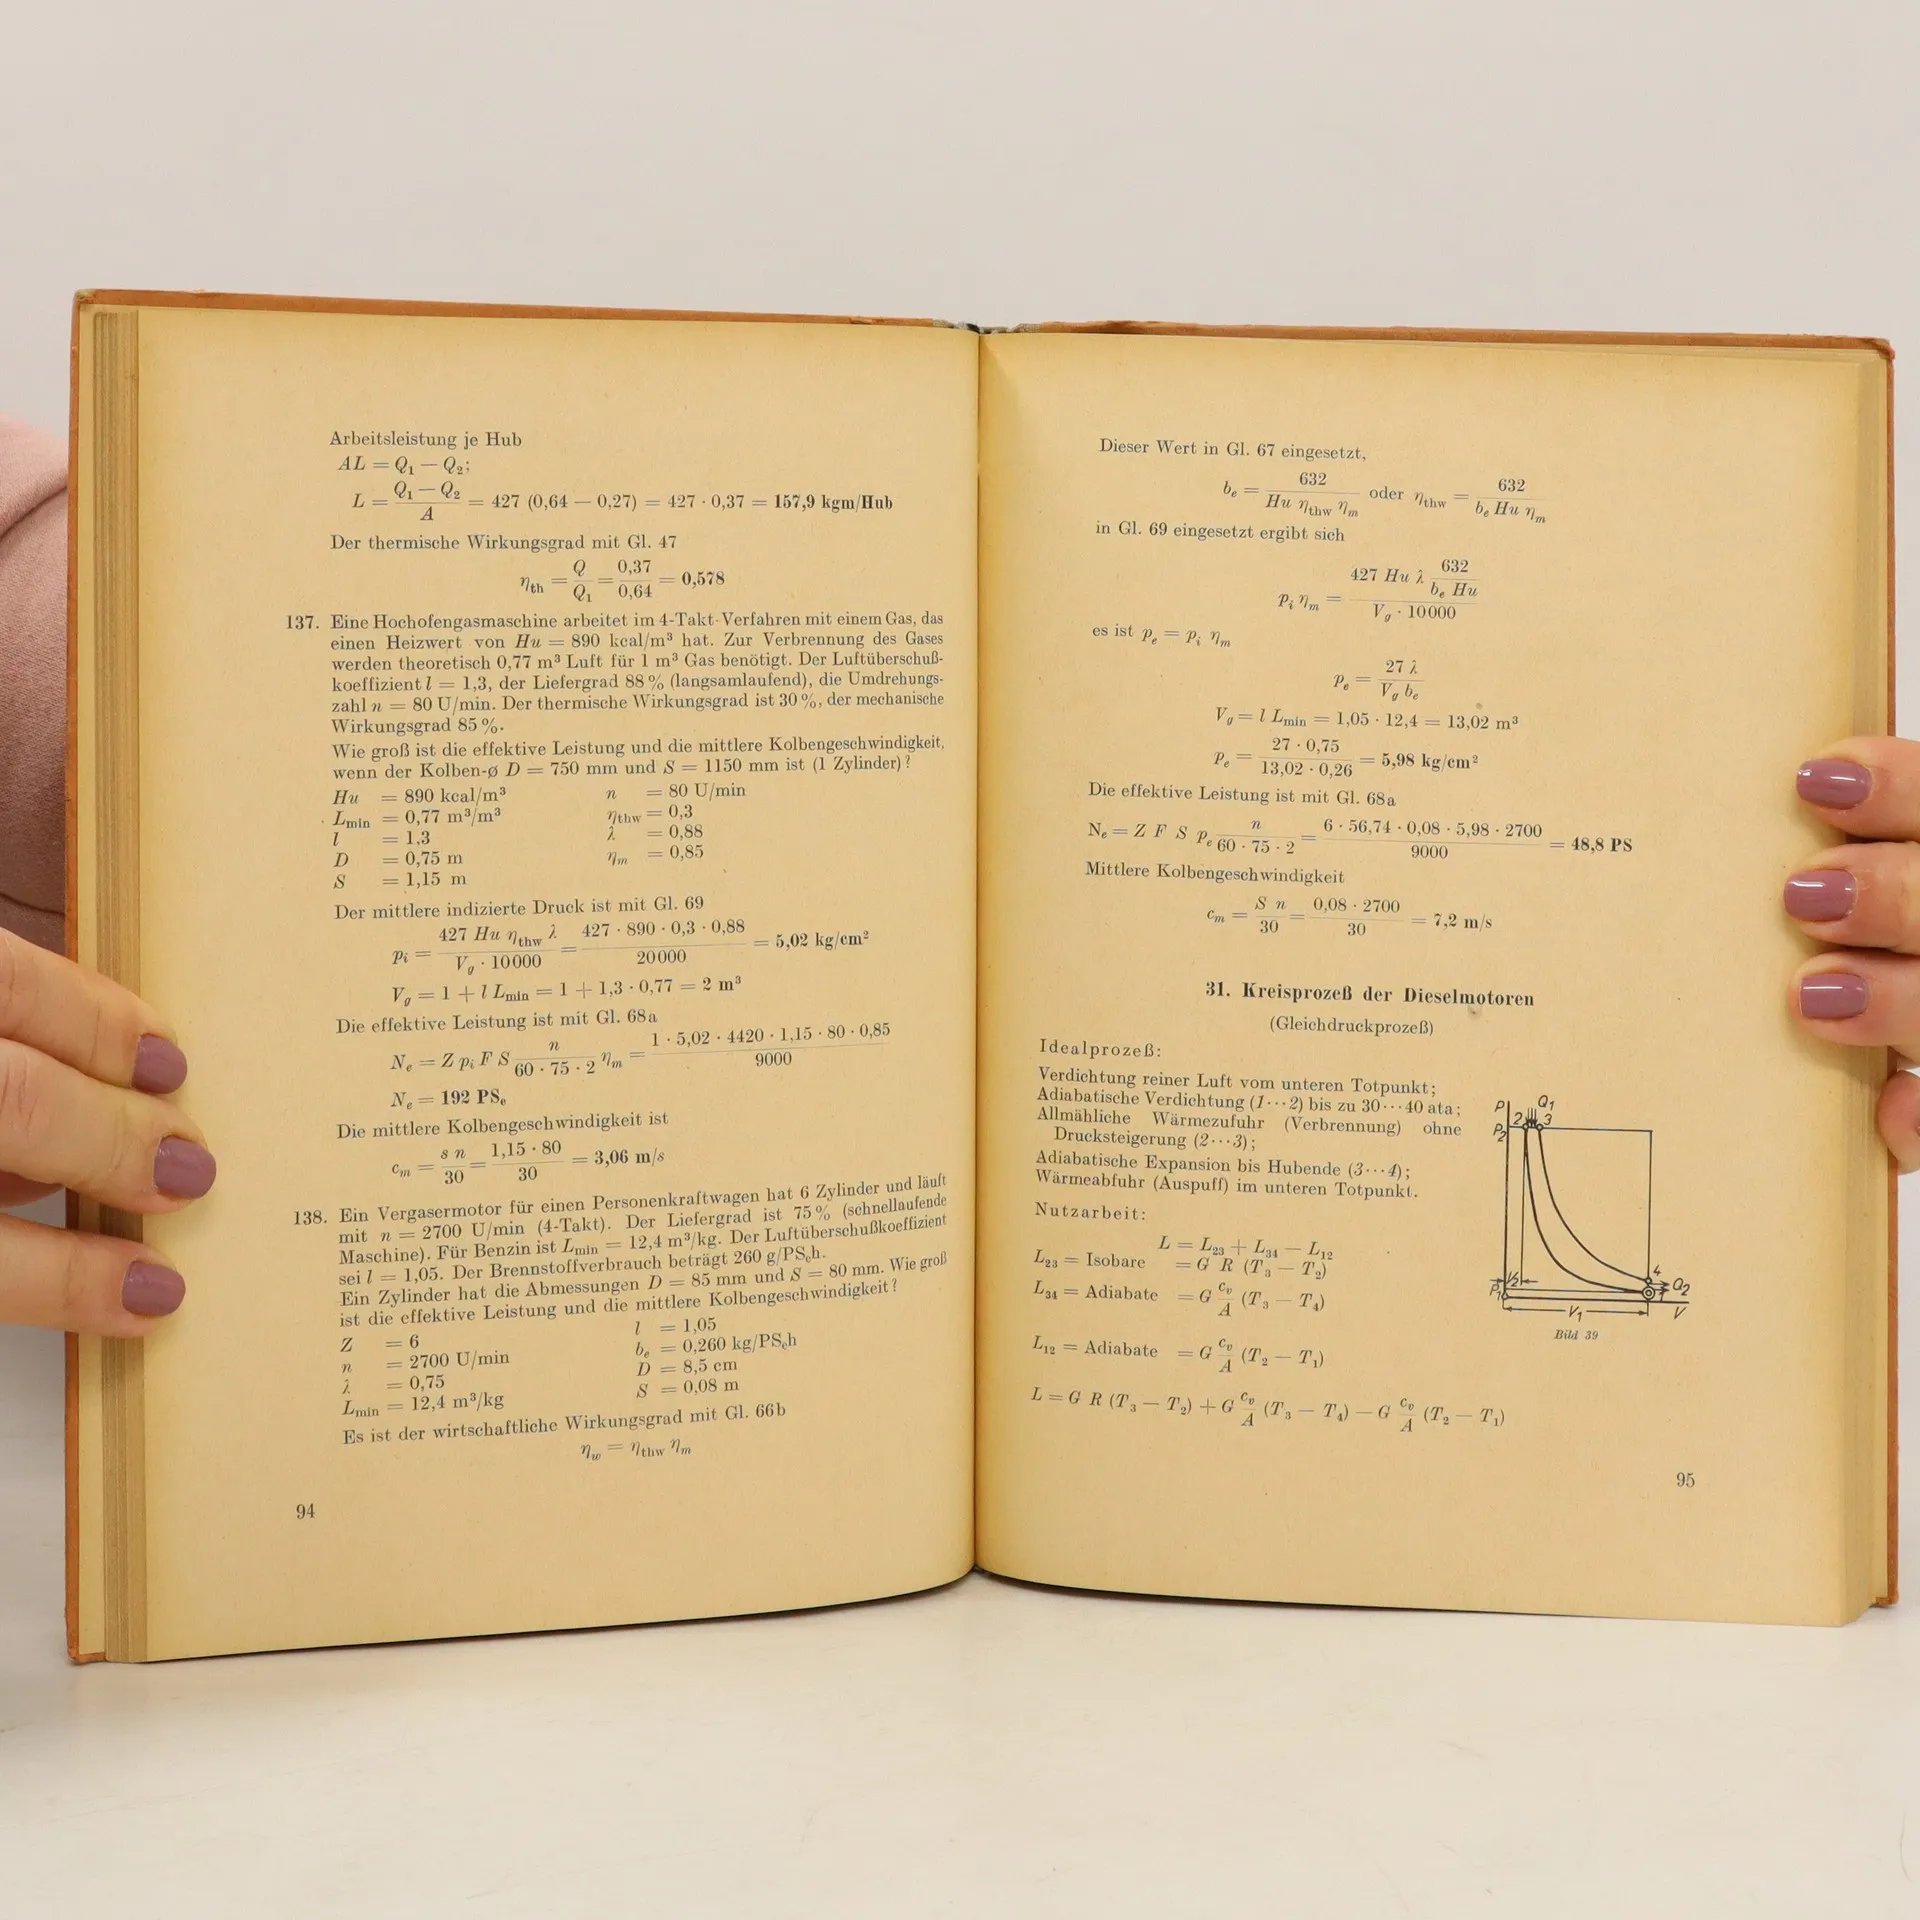 Arbeitsleistung je Hub
AL = Q₁ − Q₂;
L = (Q₁ − Q₂)/A = 427 (0,64 − 0,27) = 427 · 0,37 = 157,9 kgm/Hub
Der thermische Wirkungsgrad mit Gl. 47
η_th = Q/Q₁ = 0,37/0,64 = 0,578
137. Eine Hochofengasmaschine arbeitet im 4-Takt-Verfahren mit einem Gas, das
einen Heizwert von Hu = 890 kcal/m³ hat. Zur Verbrennung des Gases
werden theoretisch 0,77 m³ Luft für 1 m³ Gas benötigt. Der Luftüberschuß-
koeffizient l = 1,3, der Liefergrad 88 % (langsamlaufend), die Umdrehungs-
zahl n = 80 U/min. Der thermische Wirkungsgrad ist 30 %, der mechanische
Wirkungsgrad 85 %.
Wie groß ist die effektive Leistung und die mittlere Kolbengeschwindigkeit,
wenn der Kolben-ø D = 750 mm und S = 1150 mm ist (1 Zylinder)?
Hu = 890 kcal/m³ n = 80 U/min
L_min = 0,77 m³/m³ η_thw = 0,3
l = 1,3 λ = 0,88
D = 0,75 m η_m = 0,85
S = 1,15 m
Der mittlere indizierte Druck ist mit Gl. 69
p_i = (427 Hu η_thw λ)/(V_g · 10000) = (427 · 890 · 0,3 · 0,88)/20000 = 5,02 kg/cm²
V_g = 1 + l L_min = 1 + 1,3 · 0,77 = 2 m³
Die effektive Leistung ist mit Gl. 68a
N_e = Z p_i F S n/(60 · 75 · 2) η_m = (1 · 5,02 · 4420 · 1,15 · 80 · 0,85)/9000
N_e = 192 PS_e
Die mittlere Kolbengeschwindigkeit ist
c_m = (s n)/30 = (1,15 · 80)/30 = 3,06 m/s
138. Ein Vergasermotor für einen Personenkraftwagen hat 6 Zylinder und läuft
mit n = 2700 U/min (4-Takt). Der Liefergrad ist 75 % (schnellaufende
Maschine). Für Benzin ist L_min = 12,4 m³/kg. Der Luftüberschußkoeffizient
sei l = 1,05. Der Brennstoffverbrauch beträgt 260 g/PS_eh.
Ein Zylinder hat die Abmessungen D = 85 mm und S = 80 mm. Wie groß
ist die effektive Leistung und die mittlere Kolbengeschwindigkeit?
Z = 6 l = 1,05
n = 2700 U/min b_e = 0,260 kg/PS_eh
λ = 0,75 D = 8,5 cm
L_min = 12,4 m³/kg S = 0,08 m
Es ist der wirtschaftliche Wirkungsgrad mit Gl. 66b
η_w = η_thw η_m
94
Dieser Wert in Gl. 67 eingesetzt,
b_e = 632/(Hu η_thw η_m) oder η_thw = 632/(b_e Hu η_m)
in Gl. 69 eingesetzt ergibt sich
p_i η_m = (427 Hu λ 632/(b_e Hu))/(V_g · 10000)
es ist p_e = p_i η_m
p_e = (27 λ)/(V_g b_e)
V_g = l L_min = 1,05 · 12,4 = 13,02 m³
p_e = (27 · 0,75)/(13,02 · 0,26) = 5,98 kg/cm²
Die effektive Leistung ist mit Gl. 68a
N_e = Z F S p_e n/(60 · 75 · 2) = (6 · 56,74 · 0,08 · 5,98 · 2700)/9000 = 48,8 PS
Mittlere Kolbengeschwindigkeit
c_m = (S n)/30 = (0,08 · 2700)/30 = 7,2 m/s
31. Kreisprozeß der Dieselmotoren
(Gleichdruckprozeß)
Idealprozeß:
Verdichtung reiner Luft vom unteren Totpunkt;
Adiabatische Verdichtung (1···2) bis zu 30···40 ata;
Allmähliche Wärmezufuhr (Verbrennung) ohne
Drucksteigerung (2···3);
Adiabatische Expansion bis Hubende (3···4);
Wärmeabfuhr (Auspuff) im unteren Totpunkt.
Nutzarbeit:
L = L₂₃ + L₃₄ − L₁₂
L₂₃ = Isobare = G R (T₃ − T₂)
L₃₄ = Adiabate = G c_v/A (T₃ − T₄)
L₁₂ = Adiabate = G c_v/A (T₂ − T₁)
L = G R (T₃ − T₂) + G c_v/A (T₃ − T₄) − G c_v/A (T₂ − T₁)
P Q₁
P₂ 2 3
4
P₁ V₂ 1 Q₂
V₁ V
Bild 39
95